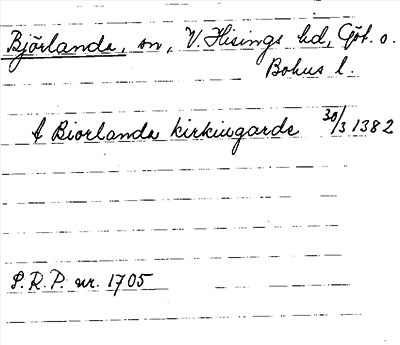 Björlanda, sn, V. Hisings hd, Göt. o.
Bohus l.
A Biorlanda kirkiugarde 30/3 1382
S.R.P. nr. 1705